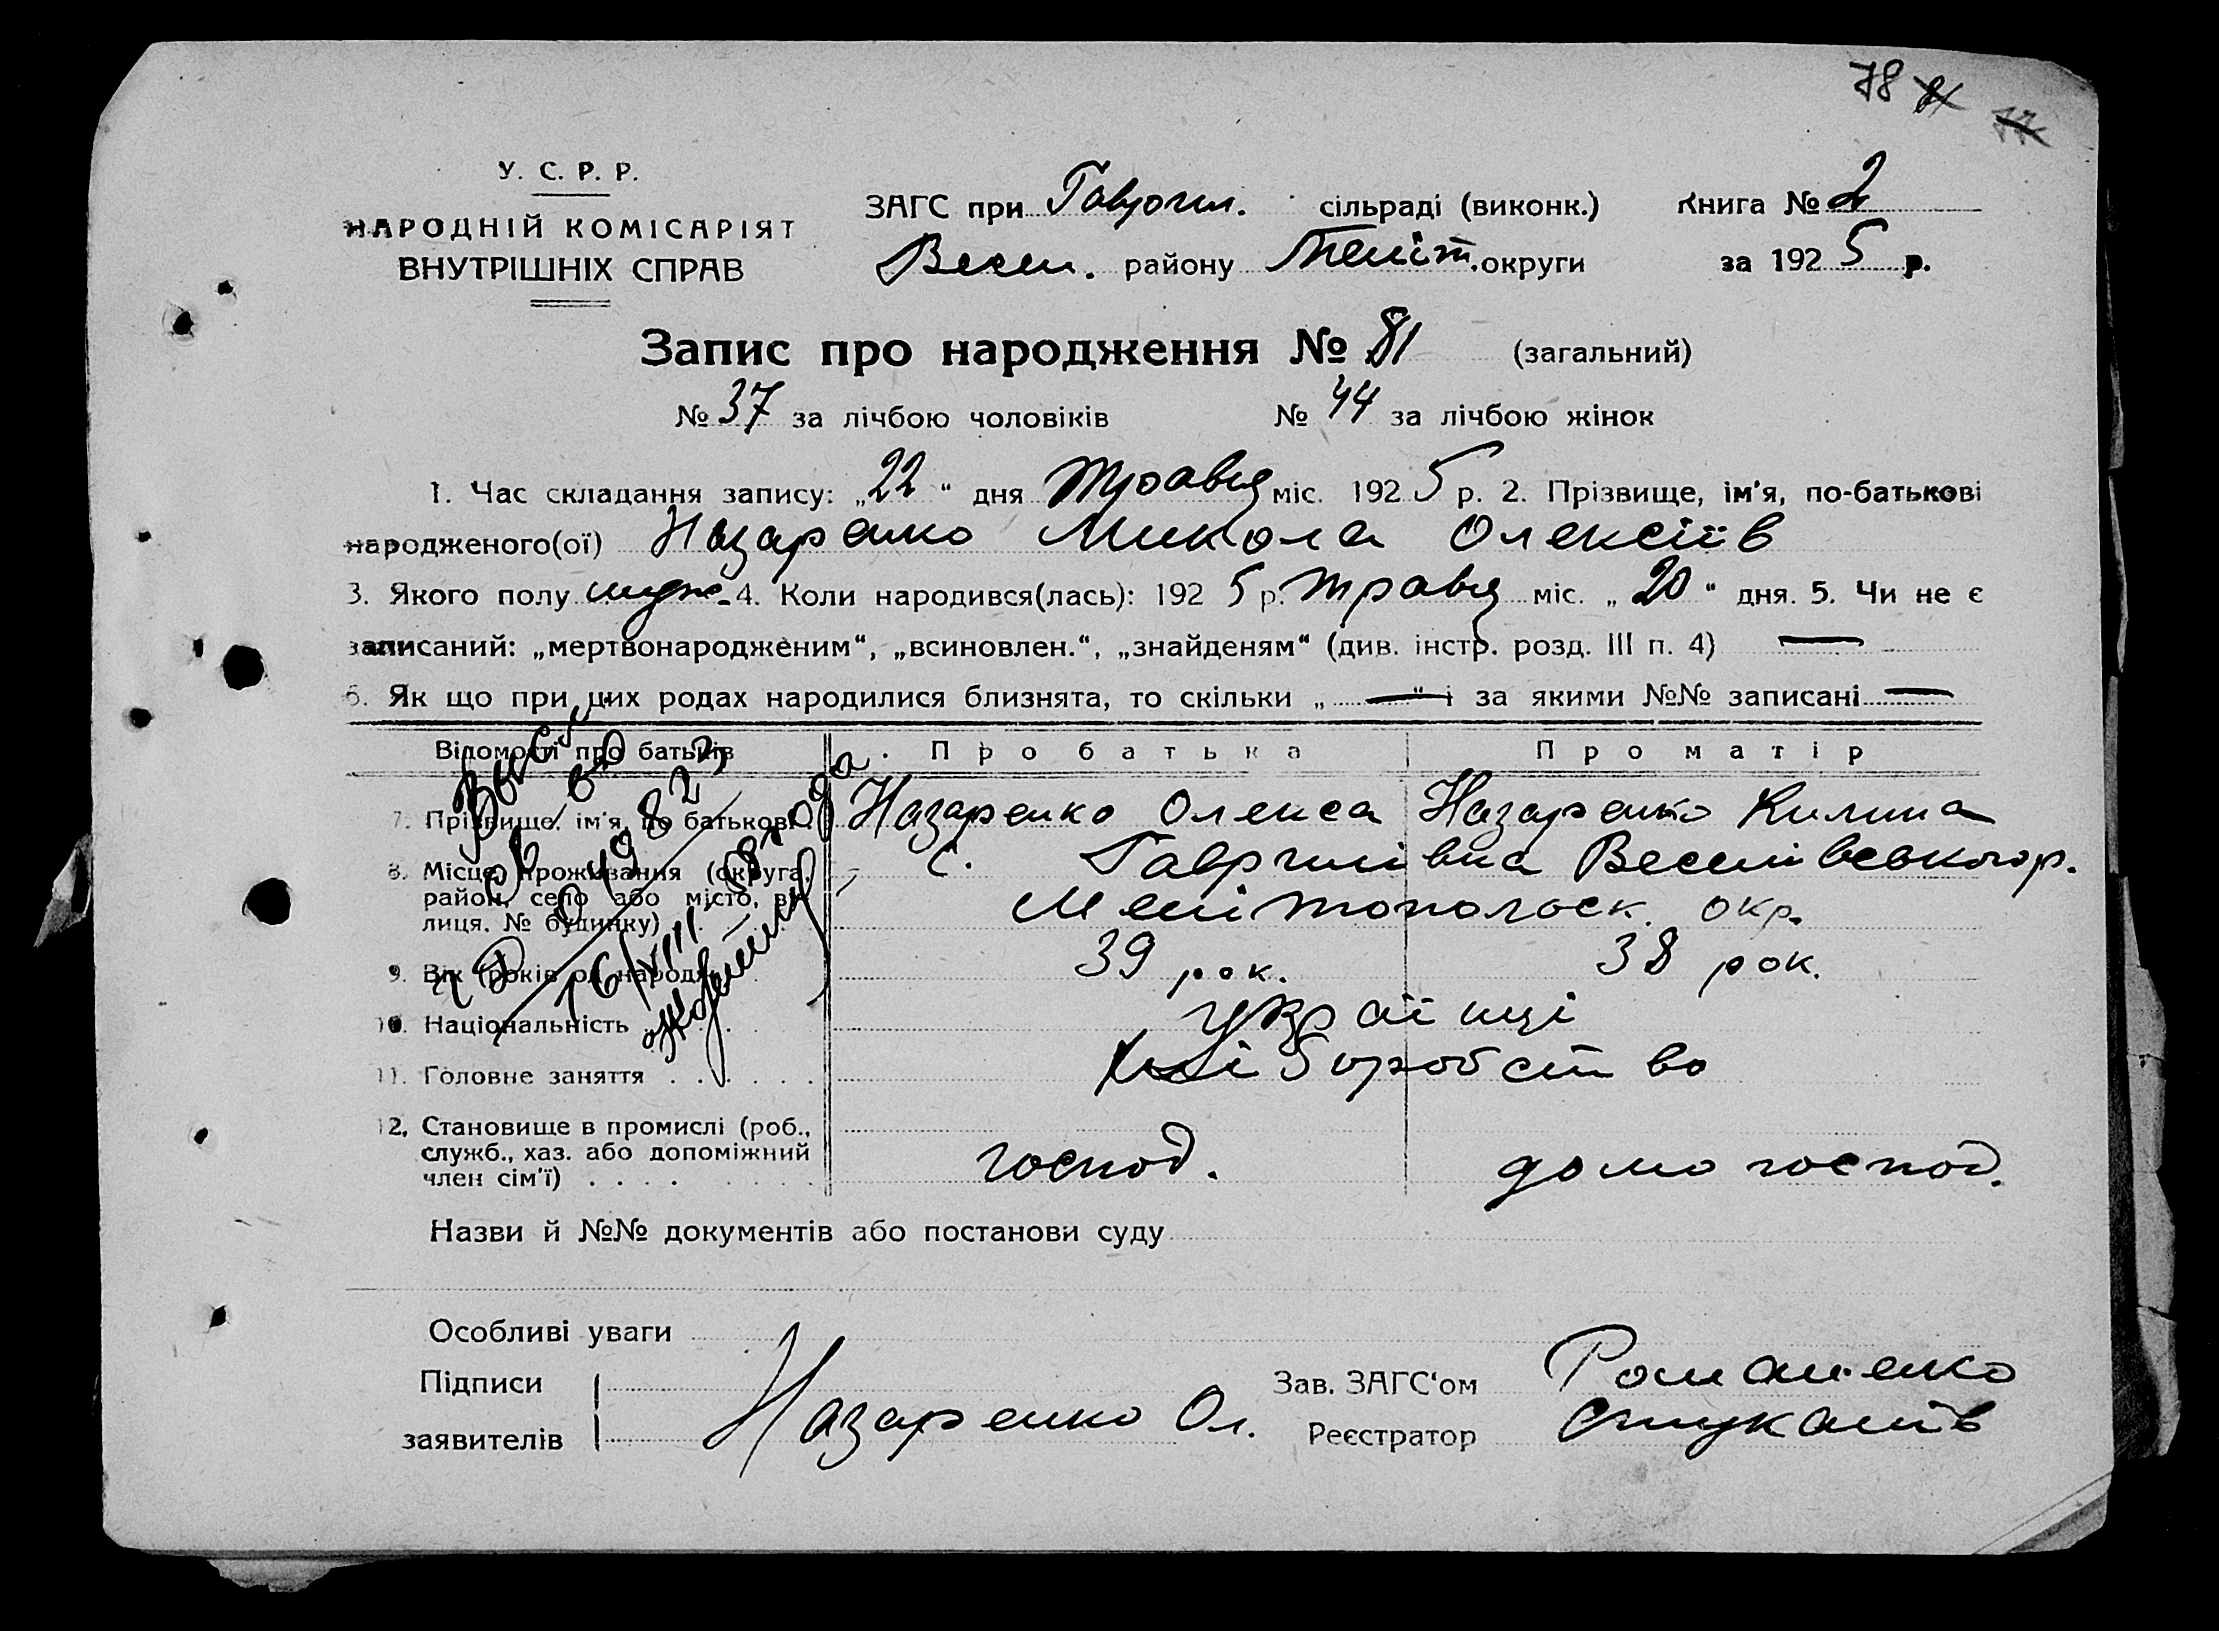 78
У. С. Р. Р.
НАРОДНІЙ КОМІСАРІЯТ
ВНУТРІШНІХ СПРАВ
ЗАГС при Гаврил. сільраді (виконк.) Книга № 2
Весел. району Меліт. округи за 1925 р.
Запис про народження № 81 (загальний)
№ 37 за лічбою чоловіків № 44 за лічбою жінок
1. Час складання запису: „22“ дня Травня міс. 1925 р. 2. Прізвище, ім'я, по-батькові
народженого(ої) Назаренко Микола Олексіїв
3. Якого полу муж. 4. Коли народився(лась): 1925 р. травня міс. „20“ дня. 5. Чи не є
записаний: „мертвонародженим“, „всиновлен.“, „знайденям“ (див. інстр. розд. III п. 4) —
6. Як що при цих родах народилися близнята, то скільки „—“ і за якими №№ записані —
Відомості про батьків Про батька Про матір
7. Прізвище, ім'я, по батькові Назаренко Олекса Назаренко Килина
8. Місце проживання (округа, с. Гаврилівка Веселівського р.
район, село або місто, ву-
лиця, № будинку) Мелітопольськ. окр.
9. Вік (років од народж.) 39 рок. 38 рок.
10. Національність Українці
11. Головне заняття . . . . . . Хліборобство
12. Становище в промислі (роб.,
служб., хаз. або допоміжний
член сім'ї) . . . . господ. домогоспод.
16/VIII
Назви й №№ документів або постанови суду
Особливі уваги
Підписи Зав. ЗАГС'ом Романенко
заявителів Назаренко Ол. Реєстратор